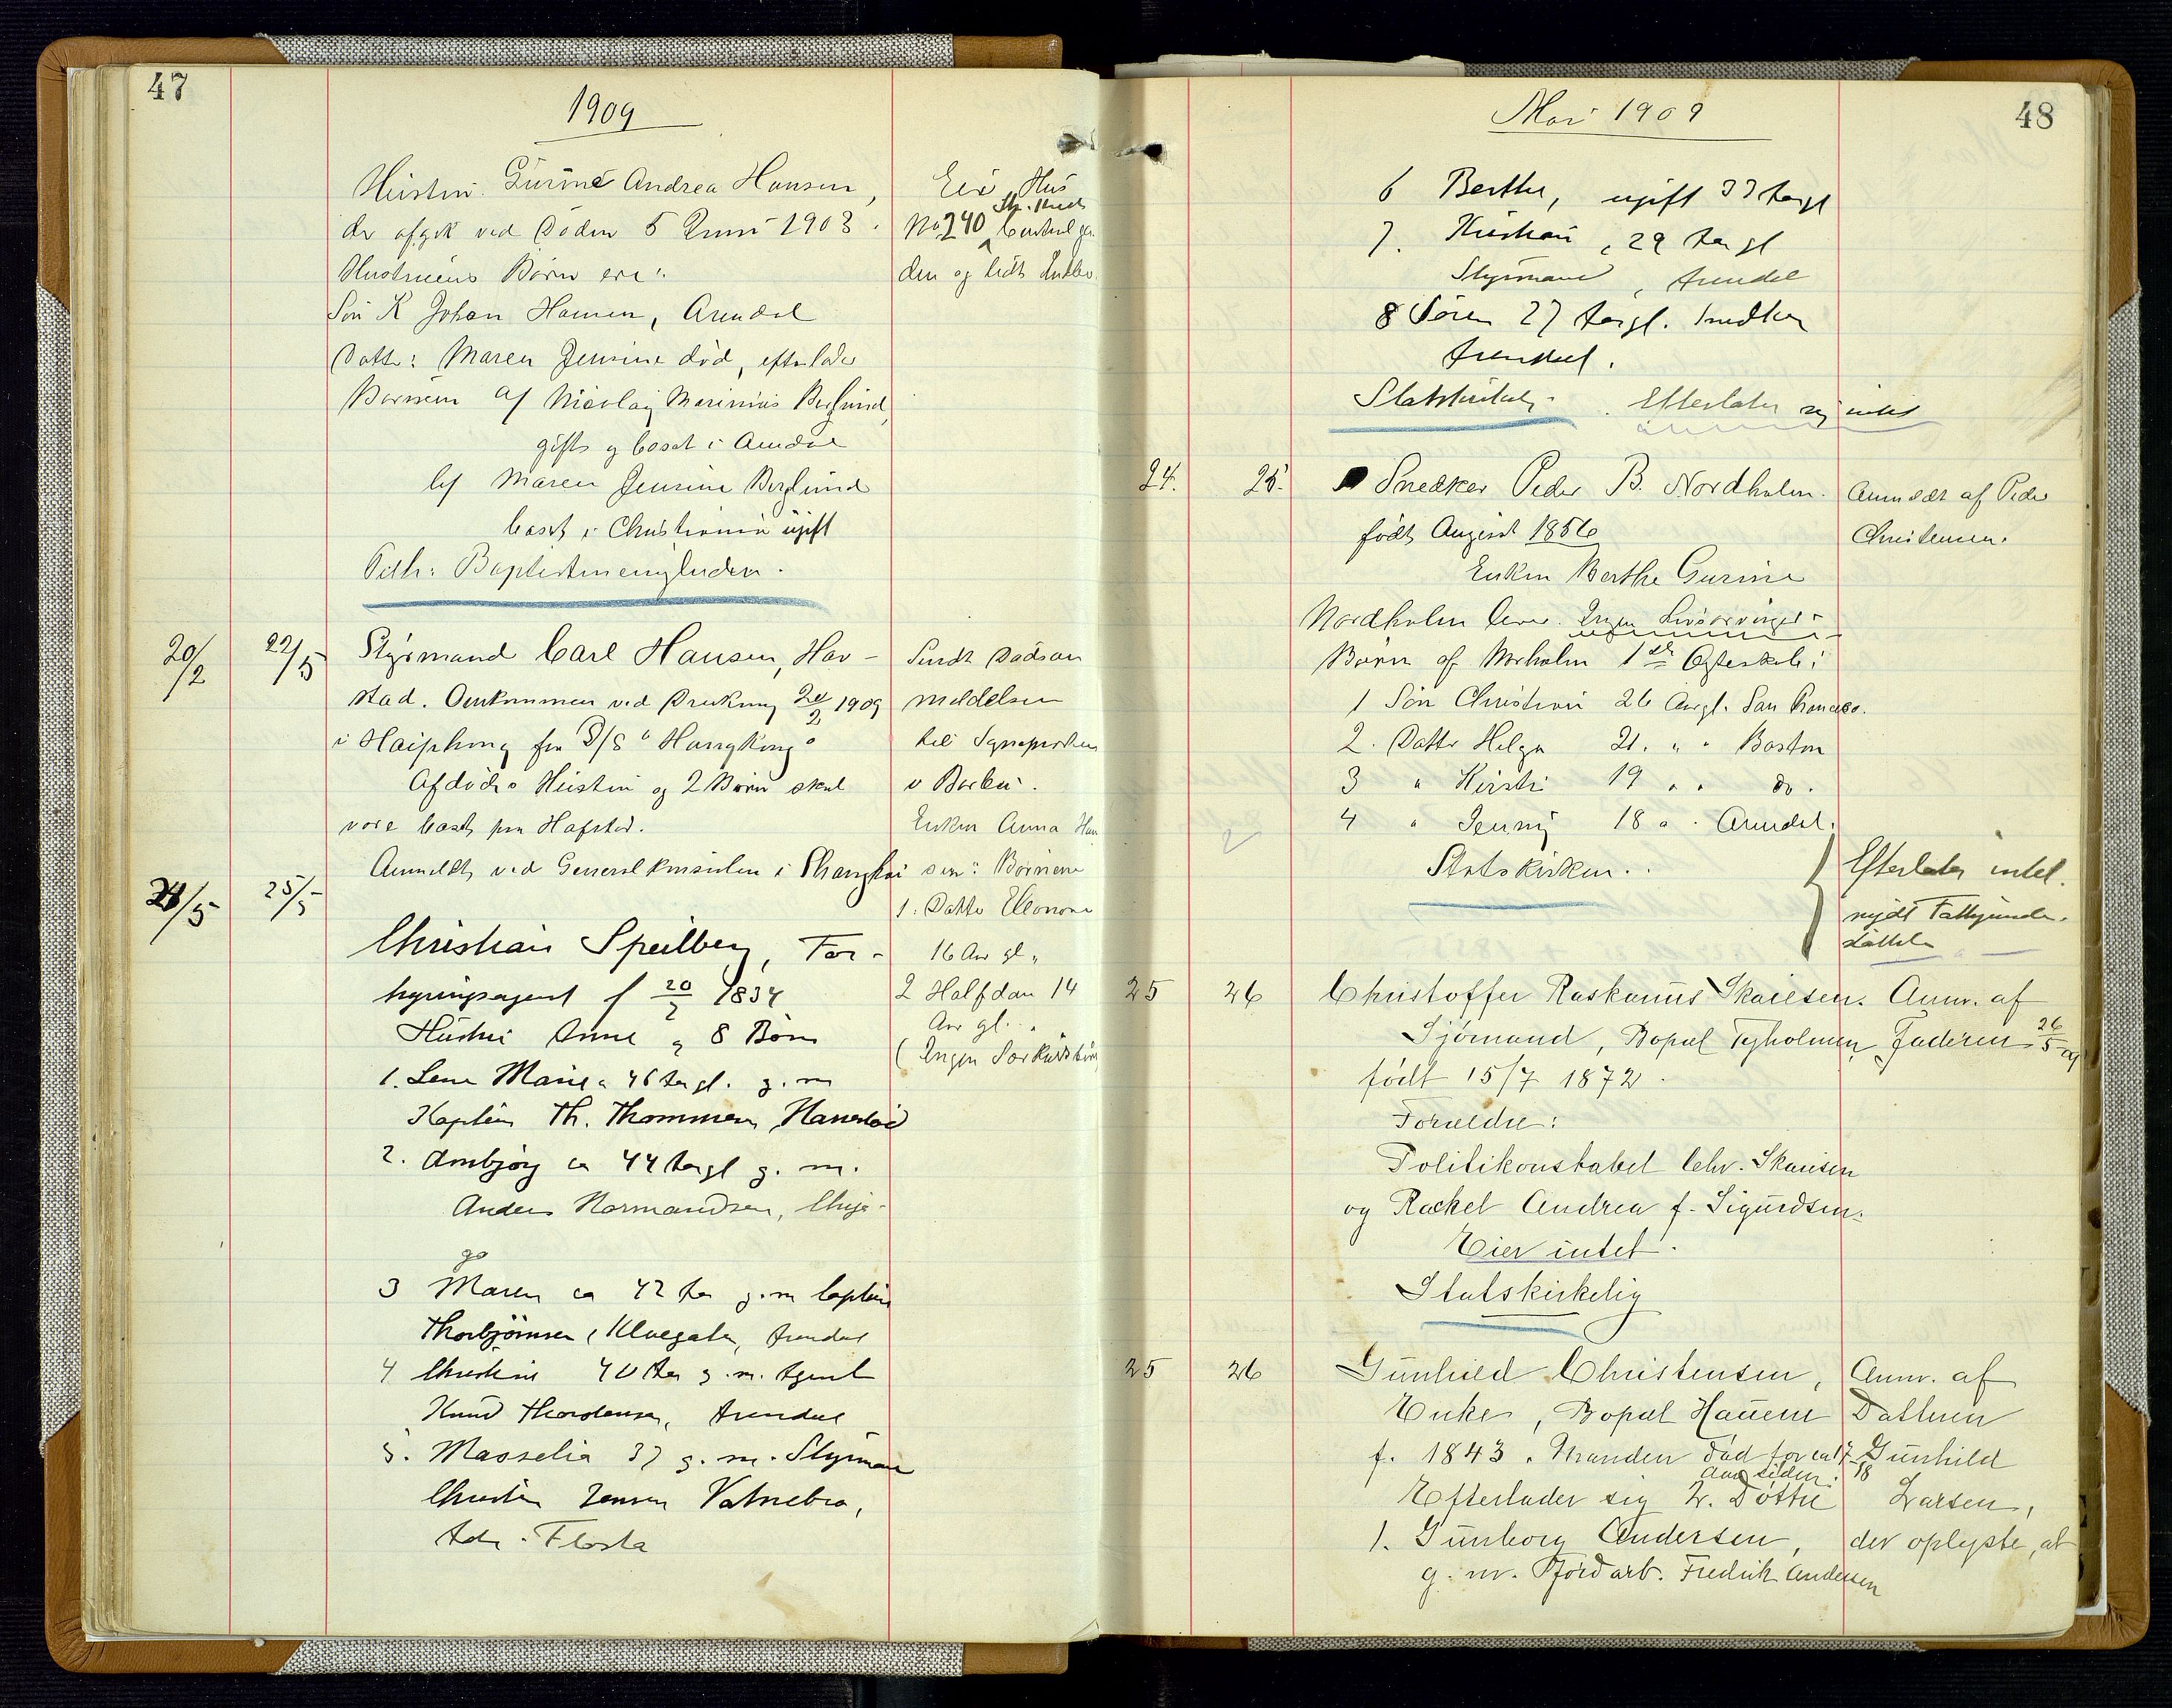 47
1909
Hustru Gurine Andrea Hansen,
der afgik ved Døden 5 Juni 1903.
Hustruens Børn ere:
Søn K Johan Hansen, Arendal
Datter: Maren Jensine død, efterlader
Børnene a/ Nicolay Marinius Berglund,
gift og bosat i Arendal
b/ Maren Jensine Berglund
bosat i Christiania ugift
Baptistmenigheden.
Eier Hus
No 240
den og lidt Indbo.
20/2 22/5 Styrmand Carl Hansen, Hav-
stad. Omkommen ved Drukning 20/2 1909
i Haiphong fra D/S "Hangkong"
Afdødes Hustru og 2 Børn skal
være bosat paa Hafstad.
Anmeldt ved Generalkonsulen i Shanghai
Sendt Dødsan
meldelsen
til
v Barbu.
Enken Anna Han
sen: Børnene
1. Datter Eleonora
16 Aar gl.
2 Halfdan 14
Aar gl.
(Ingen Særkuldsbørn
25/5
Christian Speilberg, For-
hyringsagent f 20/2 1834
Hustru Anne og 8 Børn
1. Lene Marie ca 46 Aar gl. g. m
Kaptein Th. Thommesen, Havstad
2. Anbjørg ca 44 Aar gl g. m.
Anders Normandsen, Chica-
go
3 Maren ca 42 Aar g. m Captein
Thorbjørnsen, Kloegaten, Arendal
4 Christine 40 Aar g. m. Agent
Knud Thorstensen, Arendal
5. Masselia 37 g. m. Styrmand
Christen Jensen Vatnebro,
Adr. Flosta
48
Mai 1909
6 Berthe, ugift 33 Aar gl
7. Kristian, 29 Aar gl
Styrmand, Arendal
8 Søren 27 Aar gl. Snedker
Arendal.
Statskirkelig. Efterlater sig intet
24. 25. Snedker Peder B. Nordholm.
født August 1856
Enken Berthe Gurine
Nordholm lever. Ingen Livsarvinger
Børn af Norholm 1ste Ægteskab:
1 Søn Christian 26 Aar gl. San Francisco.
2. Datter Helga 21. " " Boston
3 " Kirsti 19 " " do.
4 " Jenny 18 " " Arendal.
Statskirken.
Anmeldt af Peder
Christensen.
Efterlater intet.
nydt Fattigunder-
støttelse
25 26 Christoffer Rasmus Skailsen.
Sjømand, Bopæl Tyholmen
født 15/7 1872.
Forældre:
Politikonstabel Chr. Skailsen
og Rackel Andrea f. Sigurdsen.
Eier intet.
Statskirkelig
Anm. af
Faderen 26/5 09
25 26 Gunhild Christensen,
Enke, Bopæl Hauene
f. 1843. Manden død for ca 17-18
Aar siden.
Efterlader sig 2. Døttre
1. Gunborg Andersen,
g. m. Fjordarb. Fredrik Andersen
Anm. af
Datteren
Gunhild
Larsen,
der oplyste, at